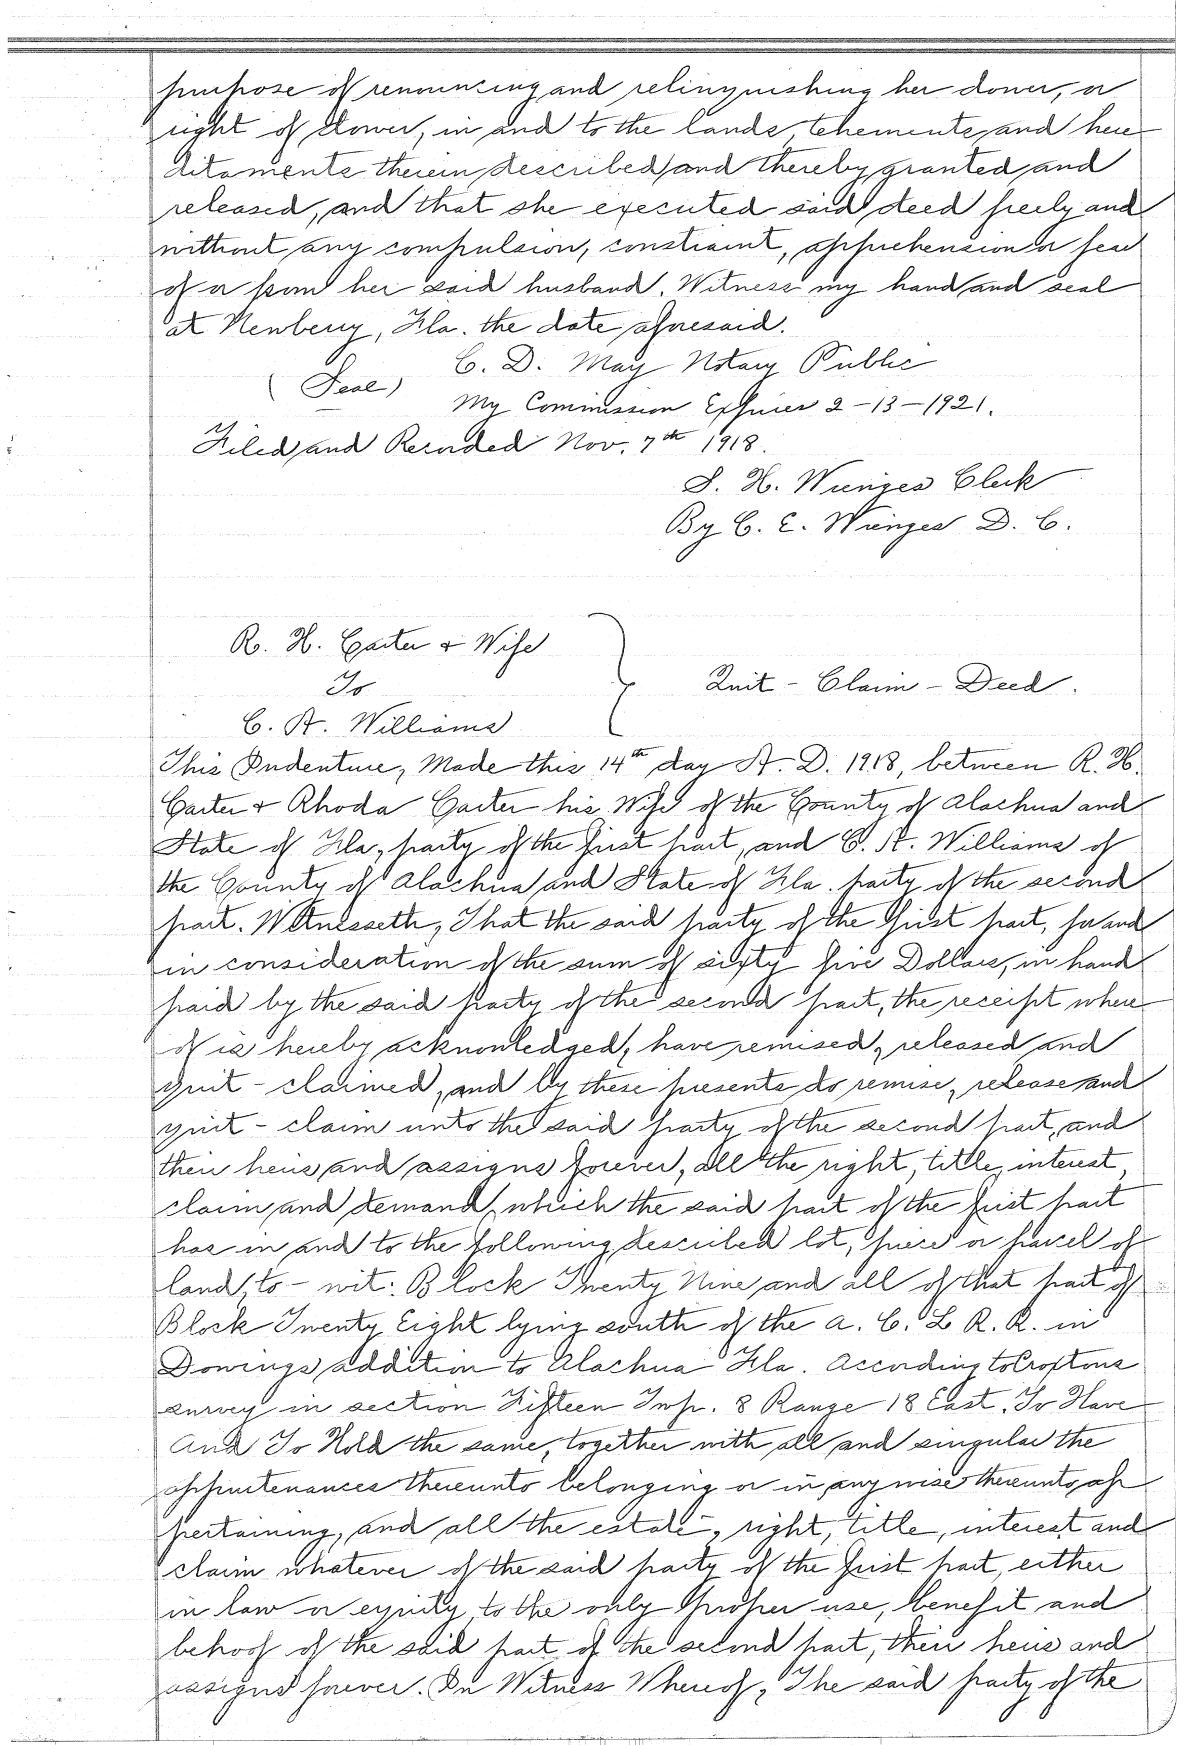 purpose of renouncing and relinquishing her dower, or
right of dower, in and to the lands, tenements, and here
ditaments therein described and thereby granted and
released, and that she executed said deed freely and
without any compulsion, constraint, apprehension or fear
of or from her said husband. Witness my hand and seal
at Newberry, Fla. the date aforesaid.
C. D. May Notary Public
(Seal)
My Commission Expires 2-13-1921.
Filed and Recorded Nov. 7th 1918.
S. H. Wienges Clerk
By C. E. Wienges D. C.
R. H. Carter & Wife
To
Quit - Claim - Deed.
C. A. Williams
This Indenture, Made this 14th day A. D. 1918, between R. H.
Carter & Rhoda Carter his Wife of the County of Alachua and
State of Fla, party of the first part, and C. A. Williams of
the County of Alachua and State of Fla. party of the second
part. Witnesseth, That the said party of the first part, for and
in consideration of the sum of sixty five Dollars, in hand
paid by the said party of the second part, the receipt where
of is hereby acknowledged, have remised, released and
quit - claimed, and by these presents do remise, release and
quit - claim unto the said party of the second part, and
their heirs and assigns forever, all the right, title, interest,
claim and demand, which the said part of the first part
has in and to the following described lot, piece or parcel of
land, to - wit: Block Twenty Nine and all of that part of
Block Twenty Eight lying south of the A. C. L R. R. in
Dowings addition to Alachua Fla. According to Croxtons
survey in section Fifteen Twp. 8 Range 18 East. To Have
And To Hold the same, together with all and singular the
appurtenances thereunto belonging or in anywise thereunto ap
pertaining, and all the estate, right, title, interest and
claim whatever of the said party of the first part, either
in law or equity, to the only proper use, benefit and
behoof of the said part of the second part, their heirs and
assigns forever. In Witness Whereof, The said party of the